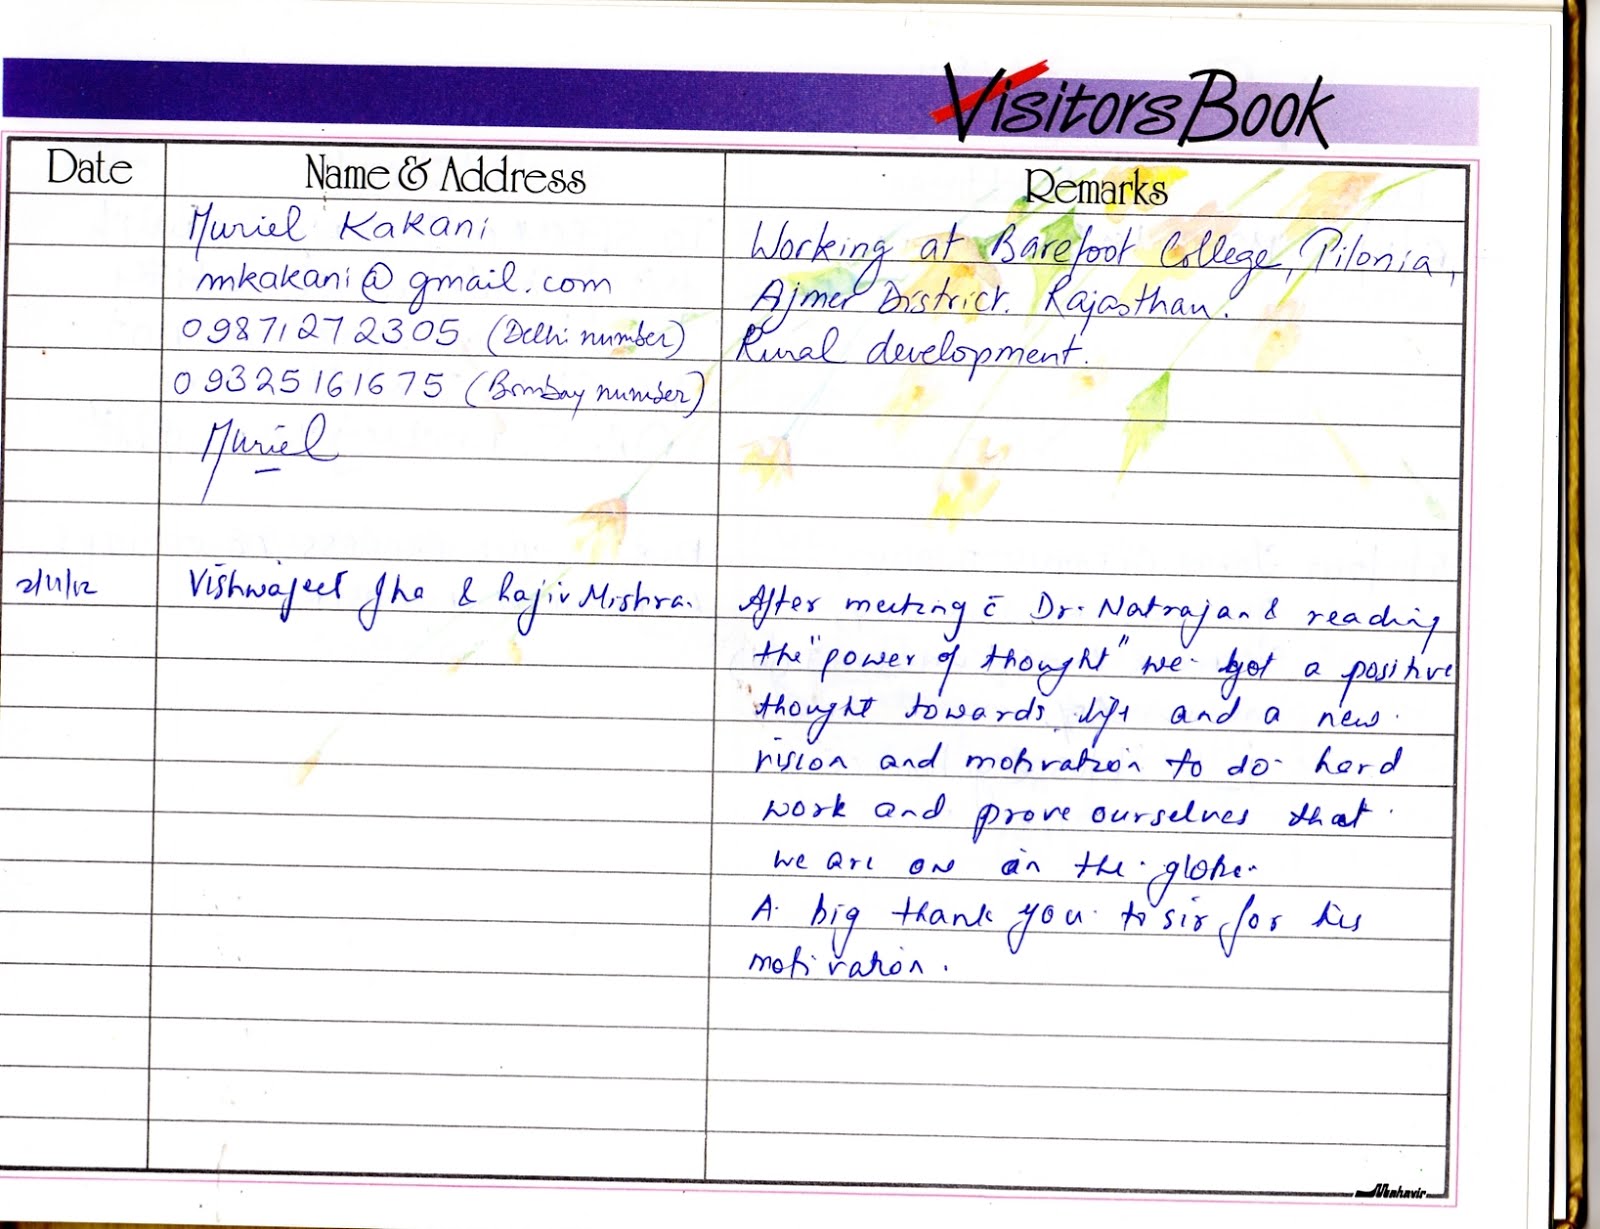 Visitors Book
Date Name & Address Remarks
Muriel Kakani
mkakani@gmail.com
09871272305 (Delhi number)
09325161675 (Bombay number)
Muriel
Working at Barefoot College, Pilonia,
Ajmer District. Rajasthan.
Rural development.
2/11/12 Vishwajeet Jha & Rajiv Mishra.
After meeting c̄ Dr. Natrajan & reading
the "power of thought" we got a positive
thought towards life and a new
vision and motivation to do hard
work and prove ourselves that
we are on in the globe.
A big thank you to sir for his
motivation.
Mahavir